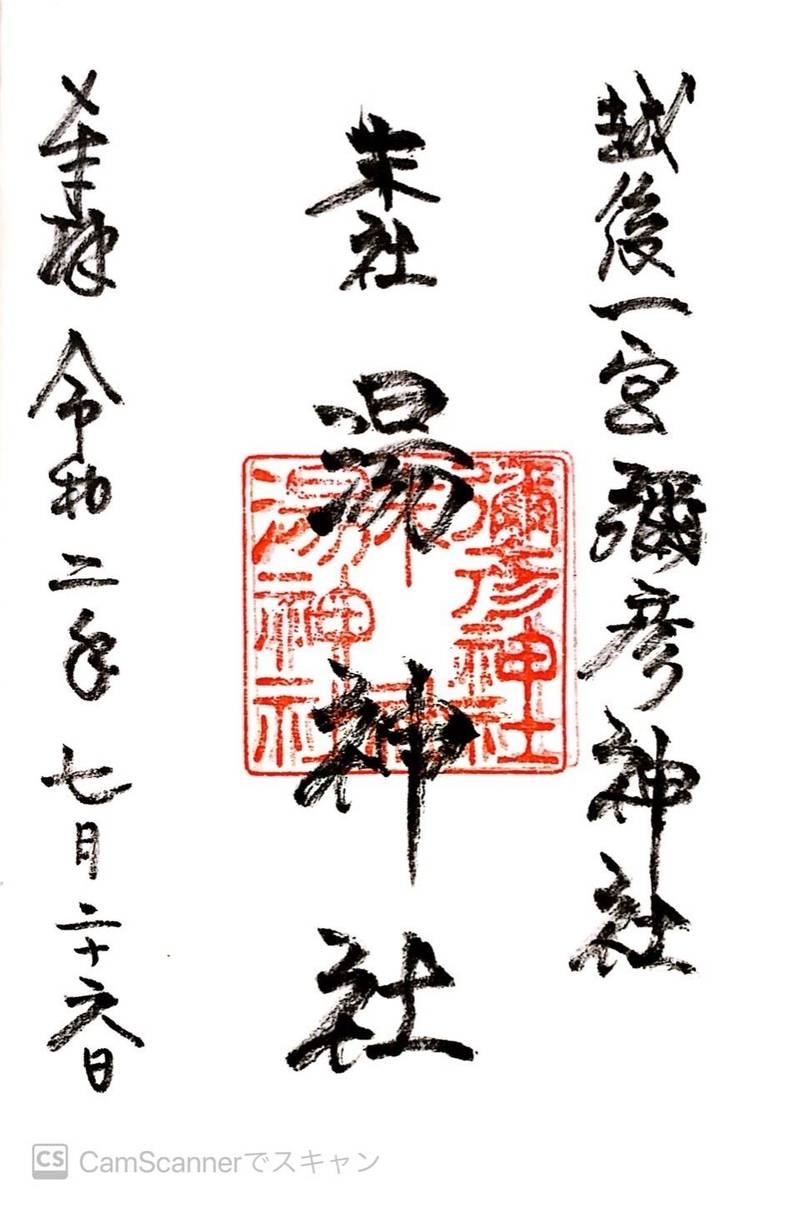 越後一宮 彌彦神社
末社 湯神社
奉拝 令和二年 七月二十六日
彌彦神社
末社
湯神社
CS CamScannerでスキャン